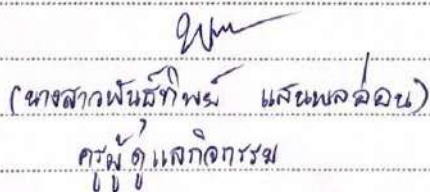 (นางสาวพันธ์ทิพย์ แสนพลอ่อน)
ครูผู้ดูแลกิจกรรม